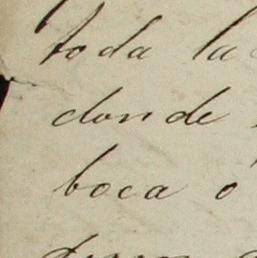 toda la
donde
boca o